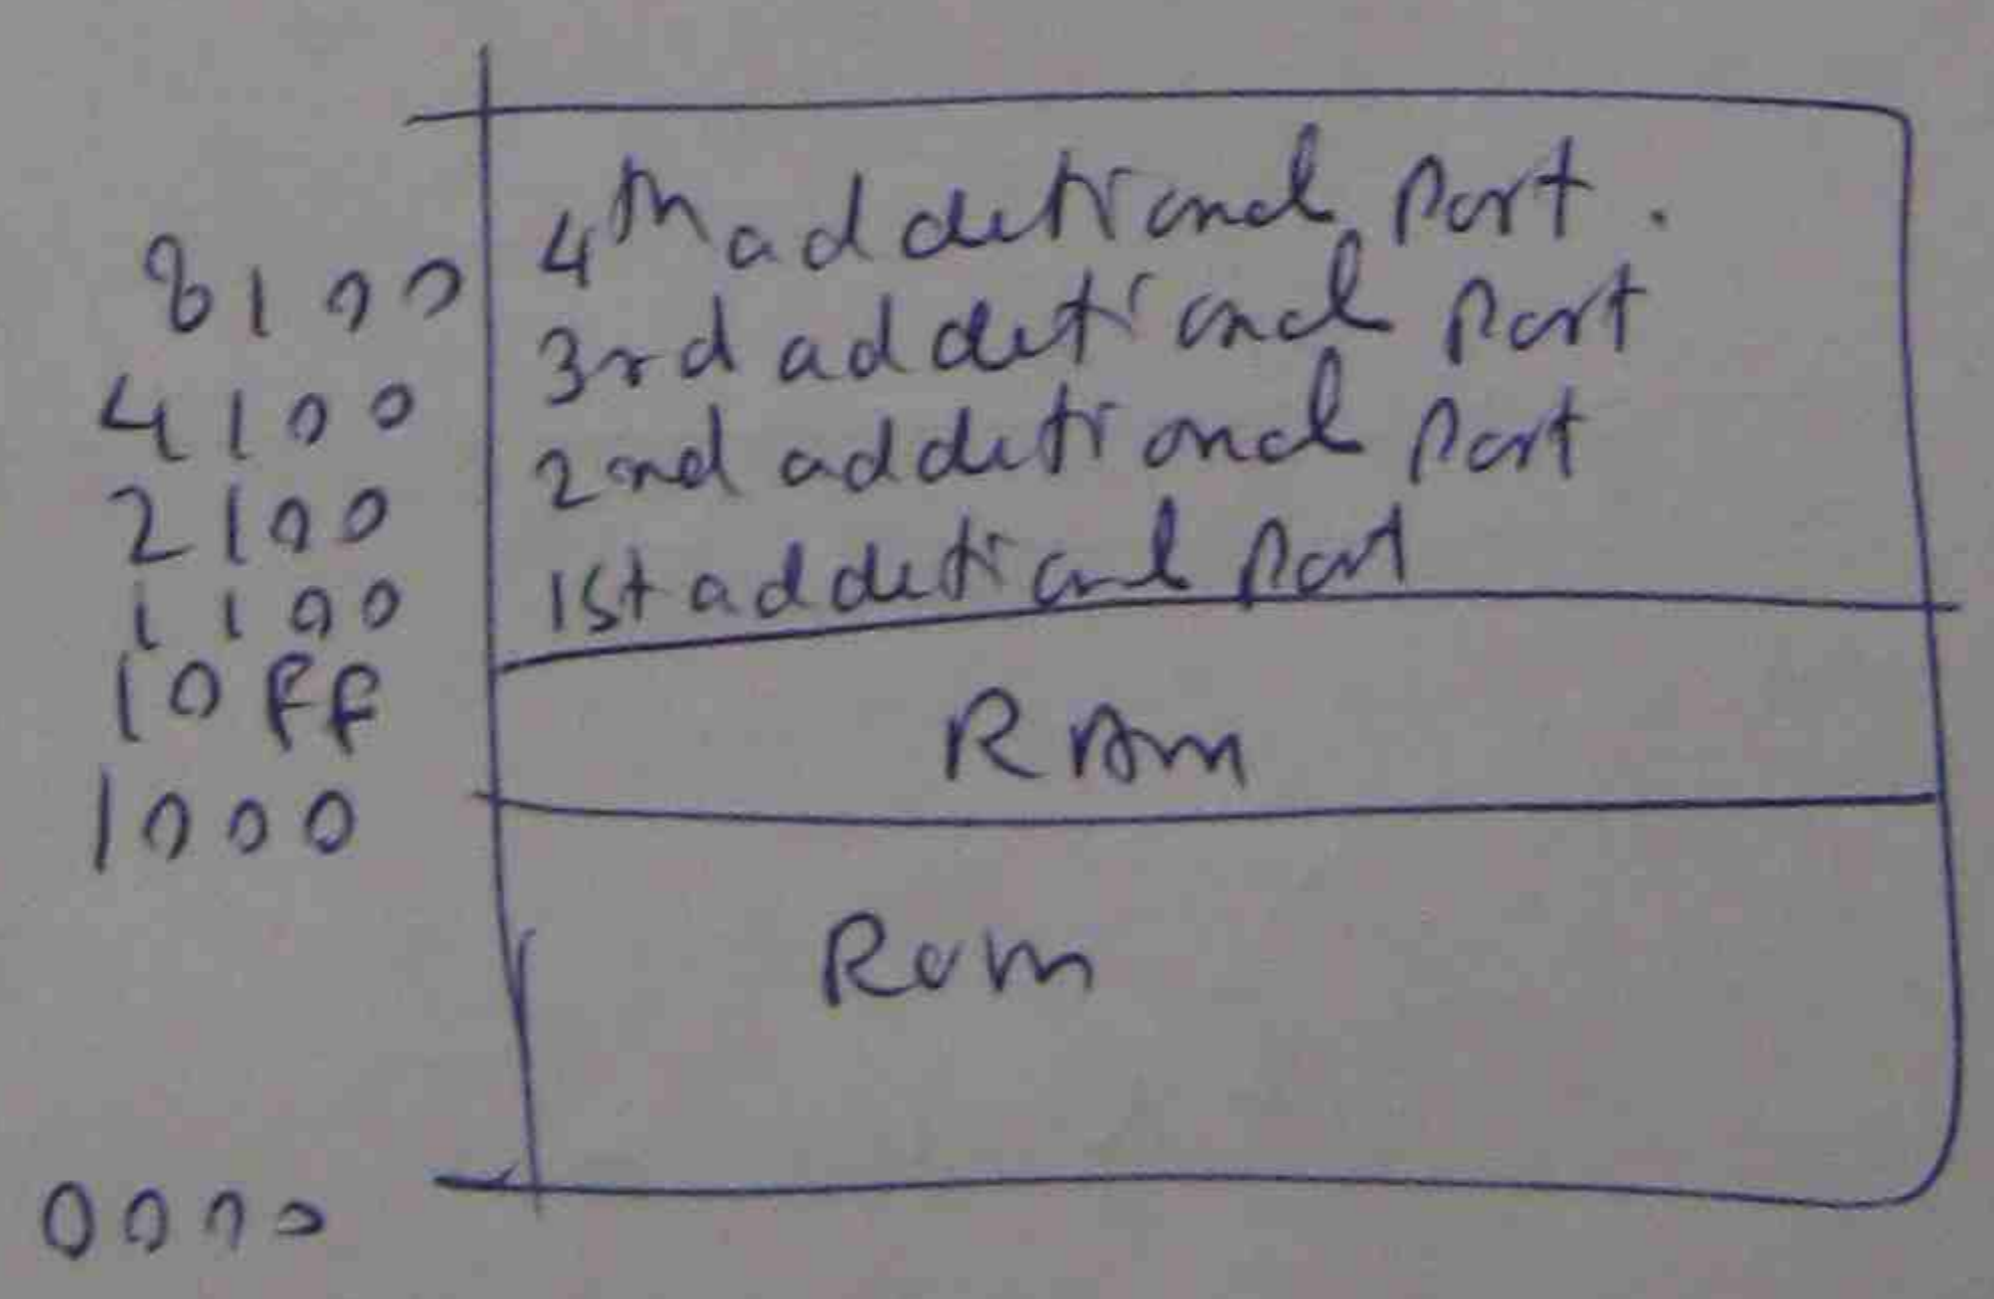 8100 4th addetional Port.
4100 3rd addetional Port
2100 2nd addetional Port
1100 1st addetional Port
10FF
RAm
1000
Rom
0000